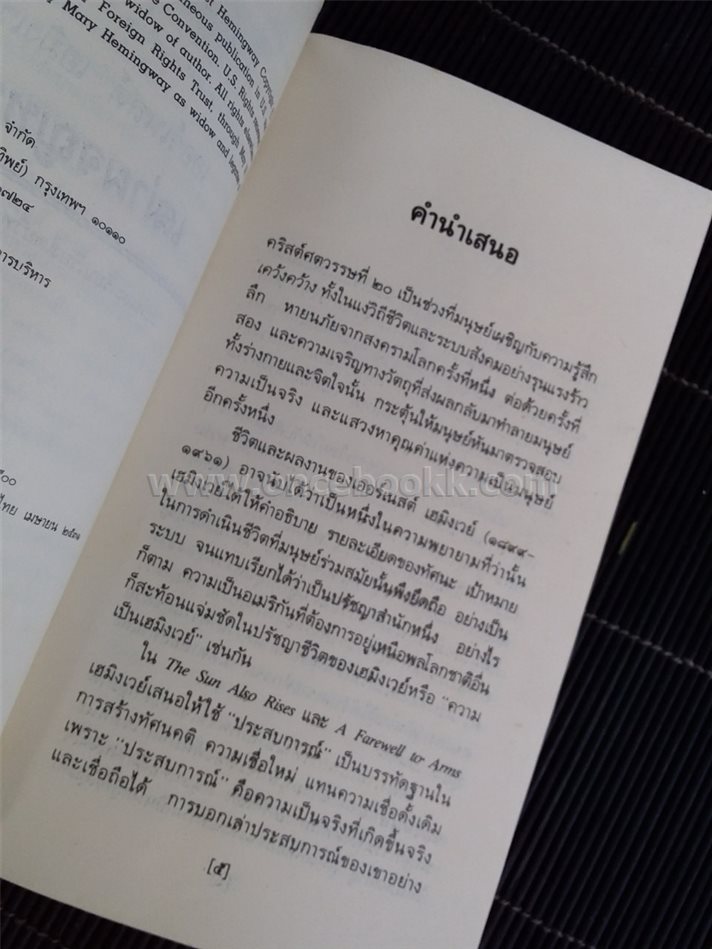 Hemingway
neous publication in U.S.
Convention. U.S. Rights
widow of author. All rights
Foreign Rights Trust, through
Mary Hemingway as widow and
จำกัด
กรุงเทพฯ ๑๐๑๑๐
๗๒๔
การบริหาร
๕๐๐
ไทย เมษายน ๒๕๓๑
คำนำเสนอ
คริสต์ศตวรรษที่ ๒๐ เป็นช่วงที่มนุษย์เผชิญกับความรู้สึก
เคว้งคว้าง ทั้งในแง่วิถีชีวิตและระบบสังคมอย่างรุนแรงร้าว
ลึก หายนภัยจากสงครามโลกครั้งที่หนึ่ง ต่อด้วยครั้งที่
สอง และความเจริญทางวัตถุที่ส่งผลกลับมาทำลายมนุษย์
ทั้งร่างกายและจิตใจนั้น กระตุ้นให้มนุษย์หันมาตรวจสอบ
ความเป็นจริง และแสวงหาคุณค่าแห่งความเป็นมนุษย์
อีกครั้งหนึ่ง
ชีวิตและผลงานของเออร์เนสต์ เฮมิงเวย์ (๑๘๙๙-
๑๙๖๑) อาจนับได้ว่าเป็นหนึ่งในความพยายามที่ว่านั้น
เฮมิงเวย์ได้ให้คำอธิบาย รายละเอียดของทัศนะ เป้าหมาย
ในการดำเนินชีวิตที่มนุษย์ร่วมสมัยนั้นพึงยึดถือ อย่างเป็น
ระบบ จนแทบเรียกได้ว่าเป็นปรัชญาสำนักหนึ่ง อย่างไร
ก็ตาม ความเป็นอเมริกันที่ต้องการอยู่เหนือพลโลกชาติอื่น
ก็สะท้อนแจ่มชัดในปรัชญาชีวิตของเฮมิงเวย์หรือ "ความ
เป็นเฮมิงเวย์" เช่นกัน
ใน The Sun Also Rises และ A Farewell to Arms
เฮมิงเวย์เสนอให้ใช้ "ประสบการณ์" เป็นบรรทัดฐานใน
การสร้างทัศนคติ ความเชื่อใหม่ แทนความเชื่อดั้งเดิม
เพราะ "ประสบการณ์" คือความเป็นจริงที่เกิดขึ้นจริง
และเชื่อถือได้ การบอกเล่าประสบการณ์ของเขาอย่าง
[๕]
www.oncebookk.com